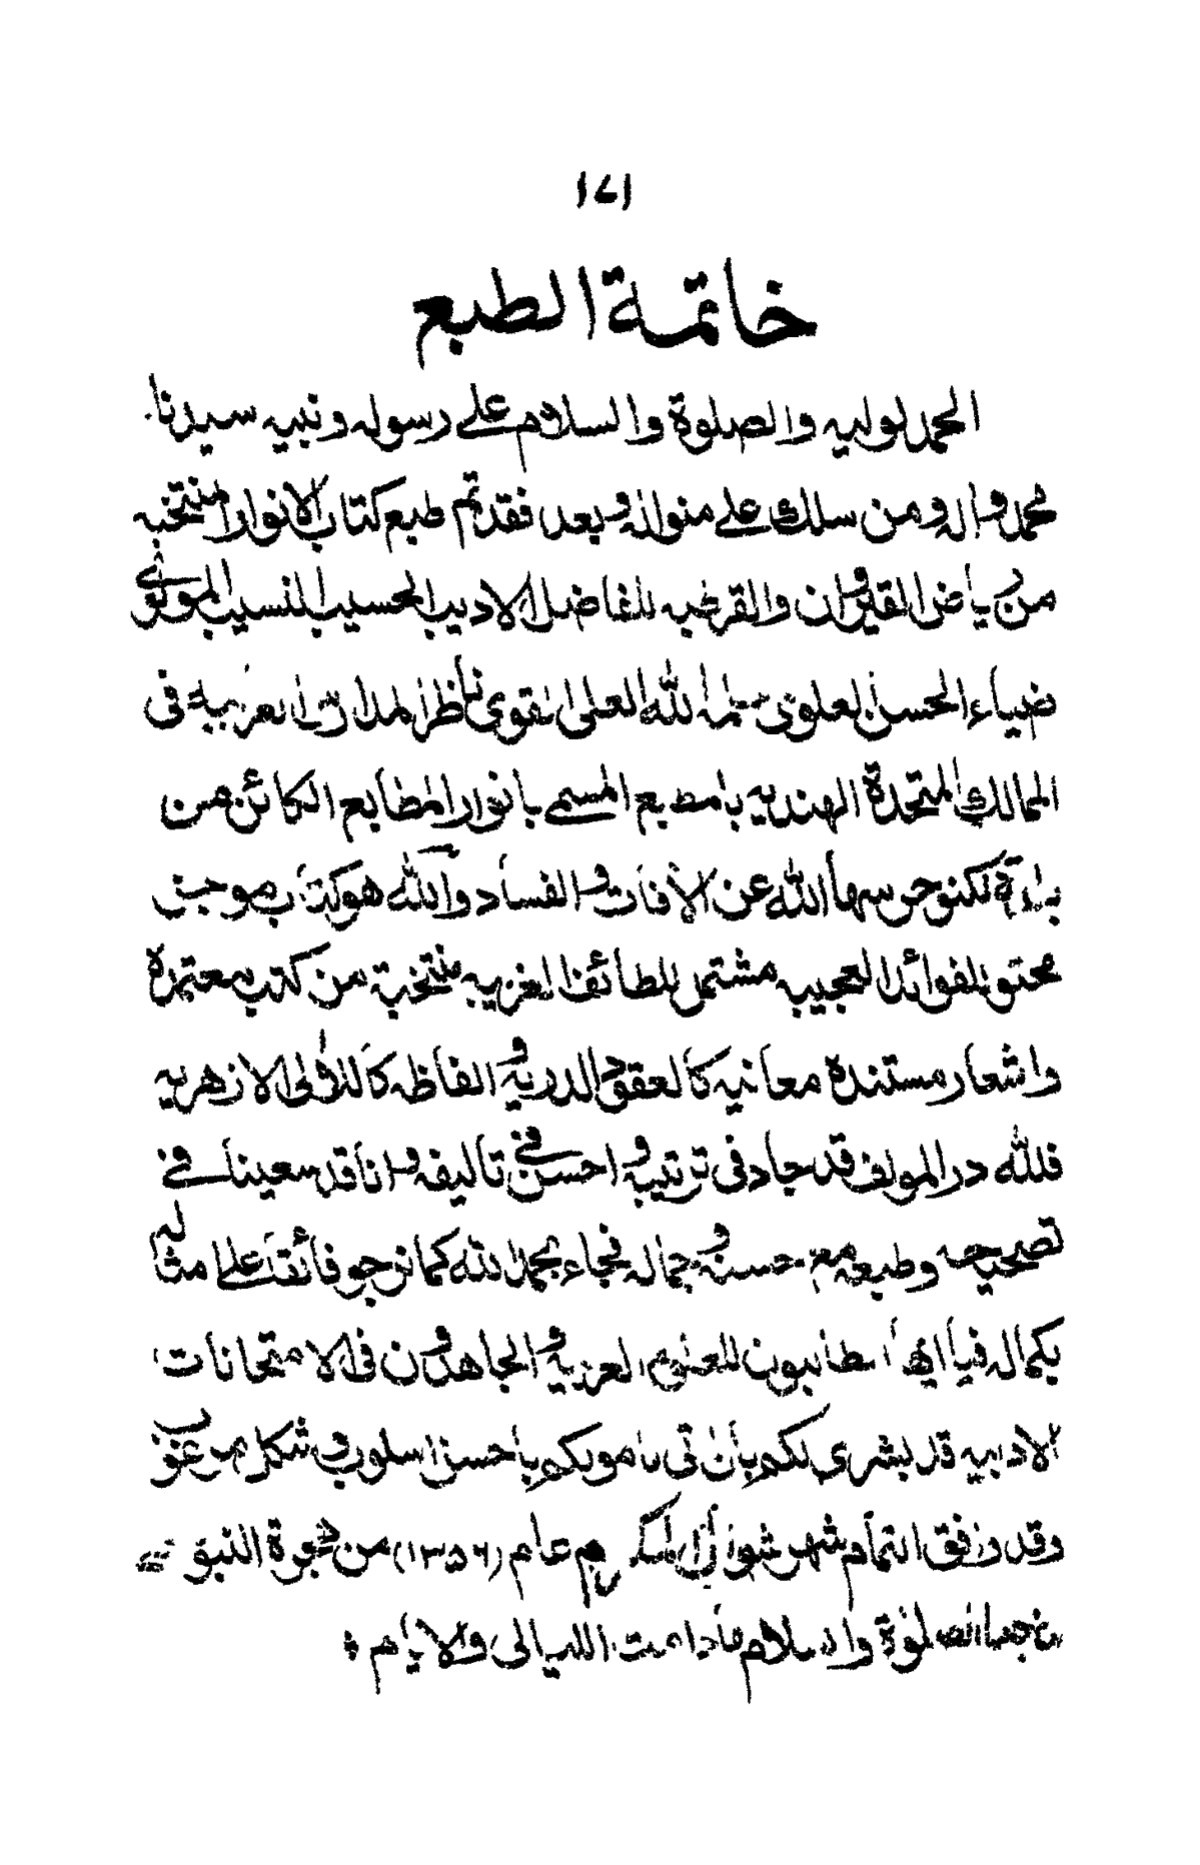 ١٧١
خاتمة الطبع
الحمد لوليه والصلوة والسلام على رسوله ونبيه سيدنا
محمد واله ومن سلك على منواله وبعد فقد تم طبع كتاب الانوار المنتخبه
من رياض القيروان والقرطبه للفاضل الاديب الحسيب النسيب المولوى
ضياء الحسن العلوى سلمه الله العلى القوى ناظر المدارس العربيه فى
الممالك المتحدة الهنديه بالمطبع المسمى بانوار المطابع الكائن من
بلدة لكنو حرسها الله عن الأفات والفساد والله هو كتاب موجز
محتو للفوائد العجيبه مشتمل للطائف الغريبه منتخبة من كتب معتمدة
واشعار مستندة معانيه كالعقود الدريه والفاظه كاللؤلى الازهريه
فلله در المولف قد جاد فى ترتيبه واحسن فى تاليفه وانا قد سعينا فى
تصحيحه وطبعه مع حسنه وجماله فجاء بحمد الله كما نرجو فائقا على امثاله
بكماله فيا ايها الطالبون للعلوم العربيه والجاهدون فى الامتحانات
الادبيه قد بشرى لكم بان اتى مامولكم باحسن اسلوب فى شكل مرغوب
وقد وفق التمام شهر شوال المكرم عام (١٣٥٦) من هجرة النبى
الصلوة والسلام مادامت الليالى والايام